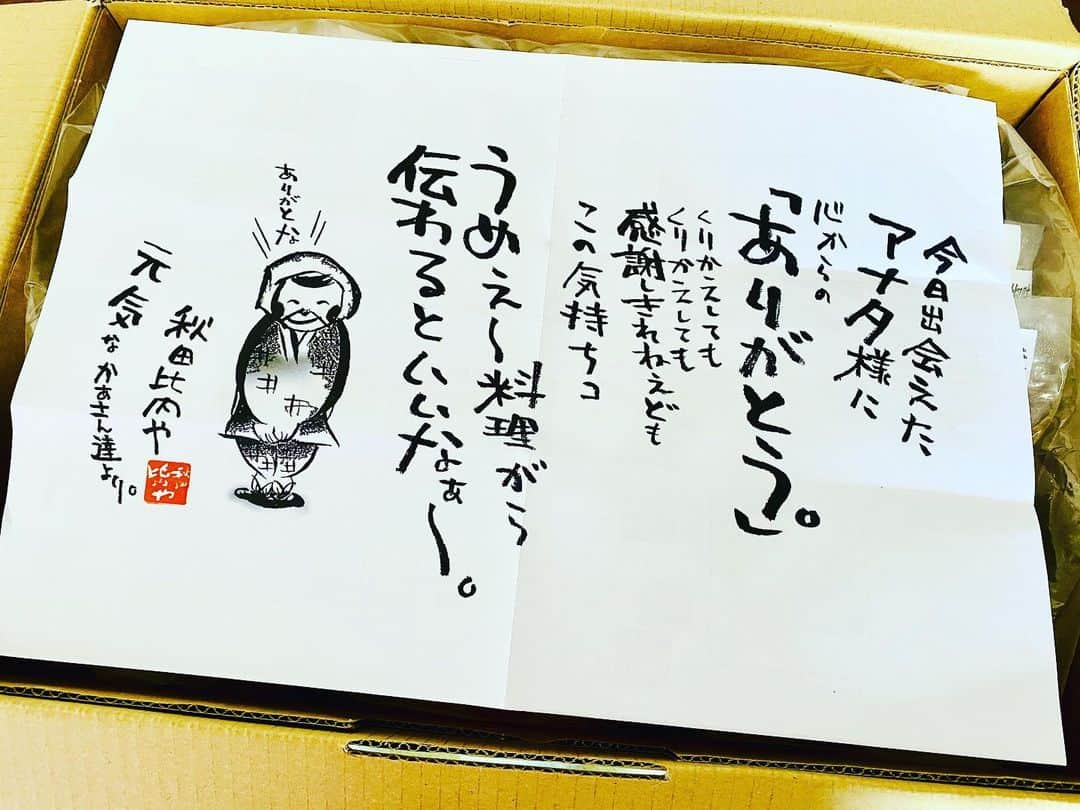 今日出会えた
アナタ様に
心からの
「ありがとう」。
くりかえしても
くりかえしても
感謝しきれねえども
この気持ちコ
うめぇ〜料理がら
伝わるといいなぁ〜。
ありがとな
秋田比内や
元気なかあさん達より。